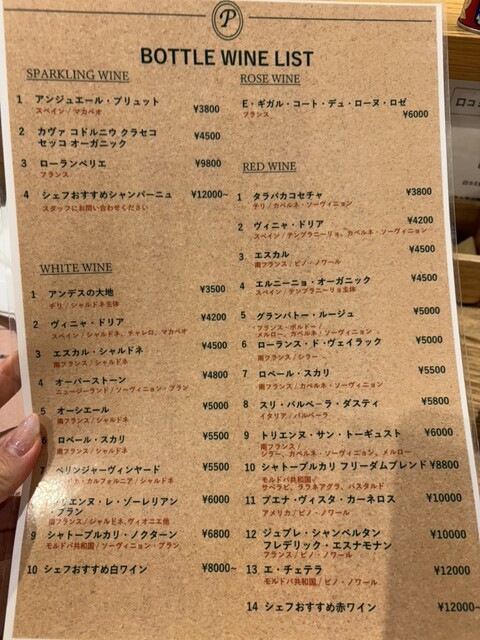 P
BOTTLE WINE LIST
SPARKLING WINE
1 アンジュエール・ブリュット ¥3800
スペイン / マカベオ
2 カヴァ コドルニウ クラセコ
セッコ オーガニック ¥4500
3 ローランペリエ ¥9800
フランス
4 シェフおすすめシャンパーニュ ¥12000~
スタッフにお問い合わせください
WHITE WINE
1 アンデスの大地 ¥3500
チリ / シャルドネ主体
2 ヴィニャ・ドリア ¥4200
スペイン / シャルドネ、チャレロ、マカベオ
3 エスカル・シャルドネ ¥4500
南フランス / シャルドネ
4 オーバーストーン ¥4800
ニュージーランド / ソーヴィニョン・ブラン
5 オーシエール ¥5000
南フランス / シャルドネ
6 ロベール・スカリ ¥5500
南フランス / シャルドネ
7 ベリンジャーヴィンヤード ¥5500
カ・カルフォルニア / シャルドネ
リエンヌ・レ・ゾーレリアン
・ブラン ¥6000
南フランス / シャルドネ、ヴィオニエ他
9 シャトープルカリ・ノクターン ¥6800
モルドバ共和国 / ソーヴィニョン・ブラン
10 シェフおすすめ白ワイン ¥8000~
ROSE WINE
E・ギガル・コート・デュ・ローヌ・ロゼ
フランス ¥6000
RED WINE
1 タラパカコセチャ ¥3800
チリ / カベルネ・ソーヴィニョン
2 ヴィニャ・ドリア ¥4200
スペイン / テンプラニーリョ、カベルネ・ソーヴィニョン
3 エスカル ¥4500
南フランス / ピノ・ノワール
4 エルニーニョ・オーガニック ¥4500
スペイン / テンプラニーリョ主体
5 グランバトー・ルージュ ¥5000
フランス・ボルドー /
メルロー、カベルネ・ソーヴィニョン
6 ローランス・ド・ヴェイラック ¥5000
南フランス / シラー
7 ロベール・スカリ ¥5500
南フランス / カベルネ・ソーヴィニョン
8 スリ・バルベーラ・ダスティ ¥5800
イタリア / バルベーラ
9 トリエンヌ・サン・トーギュスト ¥6000
南フランス /
シラー、カベルネ・ソーヴィニョン、メルロー
10 シャトープルカリ フリーダムブレンド ¥8800
モルドバ共和国 /
サペラビ、ララネアグラ、バスタルド
11 ブエナ・ヴィスタ・カーネロス ¥10000
アメリカ / ピノ・ノワール
12 ジュブレ・シャンベルタン
フレデリック・エスナモナン ¥10000
フランス / ピノ・ノワール
13 エ・チェテラ ¥12000
モルドバ共和国 / ピノ・ノワール
14 シェフおすすめ赤ワイン ¥12000~
口コ